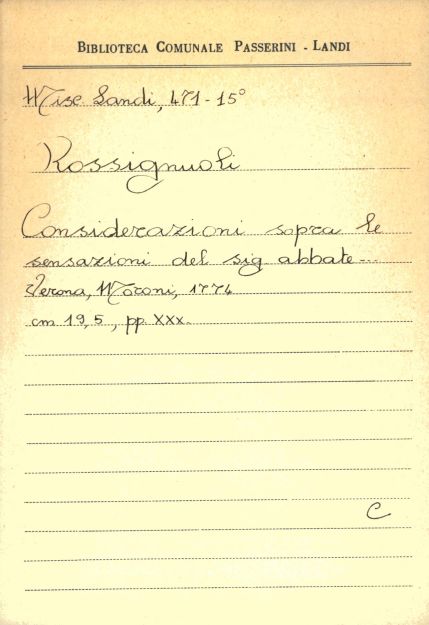 BIBLIOTECA COMUNALE PASSERINI - LANDI
Misc Landi, 471-15°
Rossignuoli
Considerazioni sopra le
sensazioni del sig abbate...
Verona, Moroni, 1774
cm 19,5, pp. XXX.
C